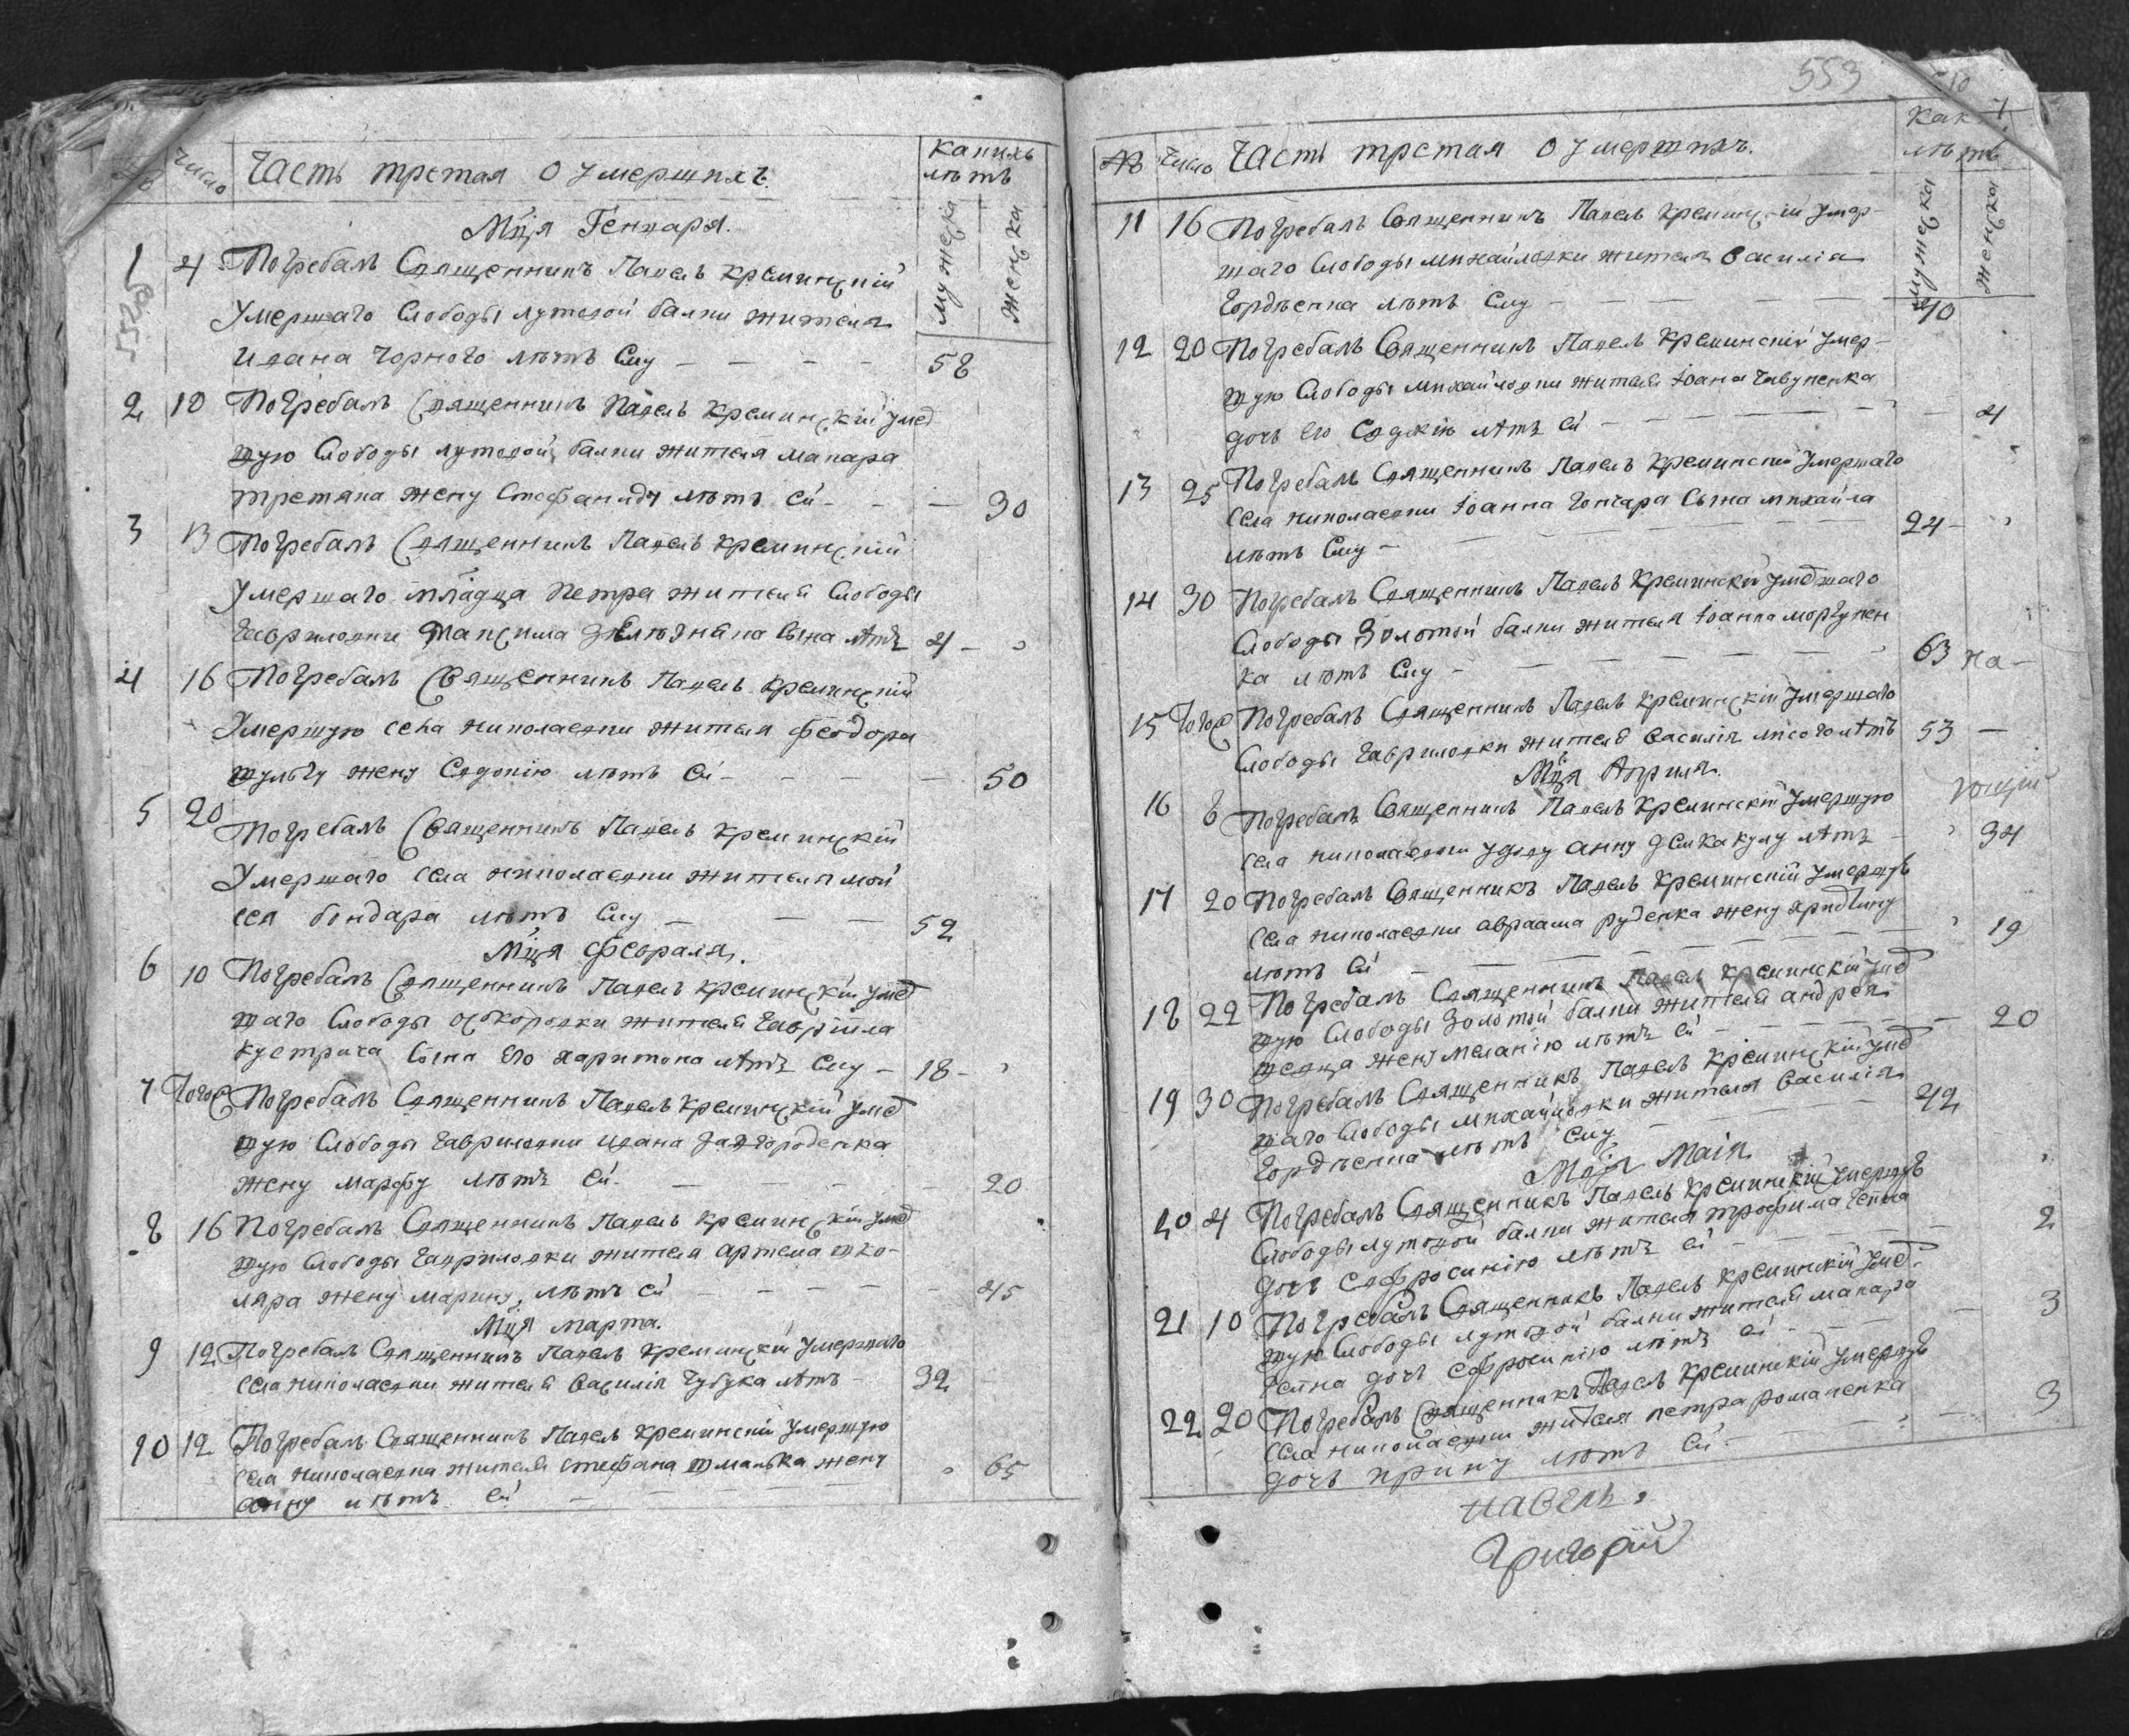 № Число Часть третая О умершихъ. Какихъ лѣтъ
мужеска женска
Мця Генваря.
552об
1 4 Погребалъ Священникъ Павелъ Креминскій
Умершаго Слободы лутовой балки жителя
Ивана Чорного лѣтъ Ему — — — — 58
2 10 Погребалъ Священникъ Павелъ Креминскій умер
шую Слободы лутовой балки жителя макара
третяка жену Стефаниду лѣтъ Ей - - — 30
3 13 Погребалъ Священникъ Павелъ Креминскій
Умершаго младца Петра жителя Слободы
Гавриловки Максима Сына лѣтъ 4 -
4 16 Погребалъ Священникъ Павелъ Креминскій
Умершую села николаевки жителя феодора
шульгу жену Евдокію лѣтъ Ей - - — — 50
5 20 Погребалъ Священникъ Павелъ Креминскій
Умершаго села николаевки жителя мой
сея бондара лѣтъ Ему — — — 52
Мця Февраля.
6 10 Погребалъ Священникъ Павелъ Креминскій умер
шаго Слободы осокоровки жителя Гавріила
Кустрича Сына Его харитона лѣтъ Ему — 18 -
7 Тогож Погребалъ Священникъ Павелъ Креминскій умер
шую Слободы Гавриловки Ивана
жену марфу лѣтъ Ей - — — — — 20
8 16 Погребалъ Священникъ Павелъ Креминскій умер
шую Слободы Гавриловки жителя артема шко-
ляра жену марину, лѣтъ Ей — — — — — 45
Мця марта.
9 12 Погребалъ Священникъ Павелъ Креминскій Умершаго
села николаевки жителя Василія Чубука лѣтъ - 32
10 12 Погребалъ Священникъ Павелъ Креминскій Умершую
села николаевки жителя стефана шманька жену
анну лѣтъ Ей — — — — 65
553
№ Число Часть третая О умершихъ. Как лѣтъ
мужеска женска
11 16 Погребалъ Священникъ Павелъ Креминскій умер-
шаго Слободы михайловки жителя Василія
Гордѣенка лѣтъ Ему — — — — 40
12 20 Погребалъ Священникъ Павелъ Креминскій умер-
шую Слободы михайловки жителя Іоана Чавуненка
дочъ его Евдокію лѣтъ Ей — — — — — 4
13 25 Погребалъ Священникъ Павелъ Креминскій Умершаго
села николаевки Іоанна Гончара Сына михайла
лѣтъ Ему — — — — — 24 -
14 30 Погребалъ Священникъ Павелъ Креминскій умершаго
Слободы Золотой балки жителя Іоанна моргунен
ка лѣтъ Ему - — — — — 63 на-
15 Тогож Погребалъ Священникъ Павелъ Креминскій Умершаго
Слободы Гавриловки жителя Василія лисого лѣтъ 53 —
Мця Априля.
16 8 Погребалъ Священникъ Павелъ Креминскій Умершую
села николаевки удову анну лѣтъ — 34
17 20 Погребалъ Священникъ Павелъ Креминскій Умершую
села николаевки авраама руденка жену
лѣтъ Ей — — — — 19
18 22 Погребалъ Священникъ Павелъ Креминскій умер
шую Слободы Золотой балки жителя андрея
шевца жену меланію лѣтъ Ей — — — — 20
19 30 Погребалъ Священникъ Павелъ Креминскій умер
шаго Слободы михайловки жителя Василія
Гордѣенка лѣтъ Ему — — — 42
Мця Маія
20 4 Погребалъ Священникъ Павелъ Креминскій Умершую
Слободы лутовой балки жителя трофима
дочъ Ефросинію лѣтъ Ей — — — — 2
21 10 Погребалъ Священникъ Павелъ Креминскій умер-
шую Слободы лутовой балки жителя макара
дочъ Ефросинію лѣтъ Ей — — — — 3
22 20 Погребалъ Священникъ Павелъ Креминскій Умершую
села николаевки жителя петра романенка
дочъ ирину лѣтъ Ей - — — — 3
Павелъ
Григорій